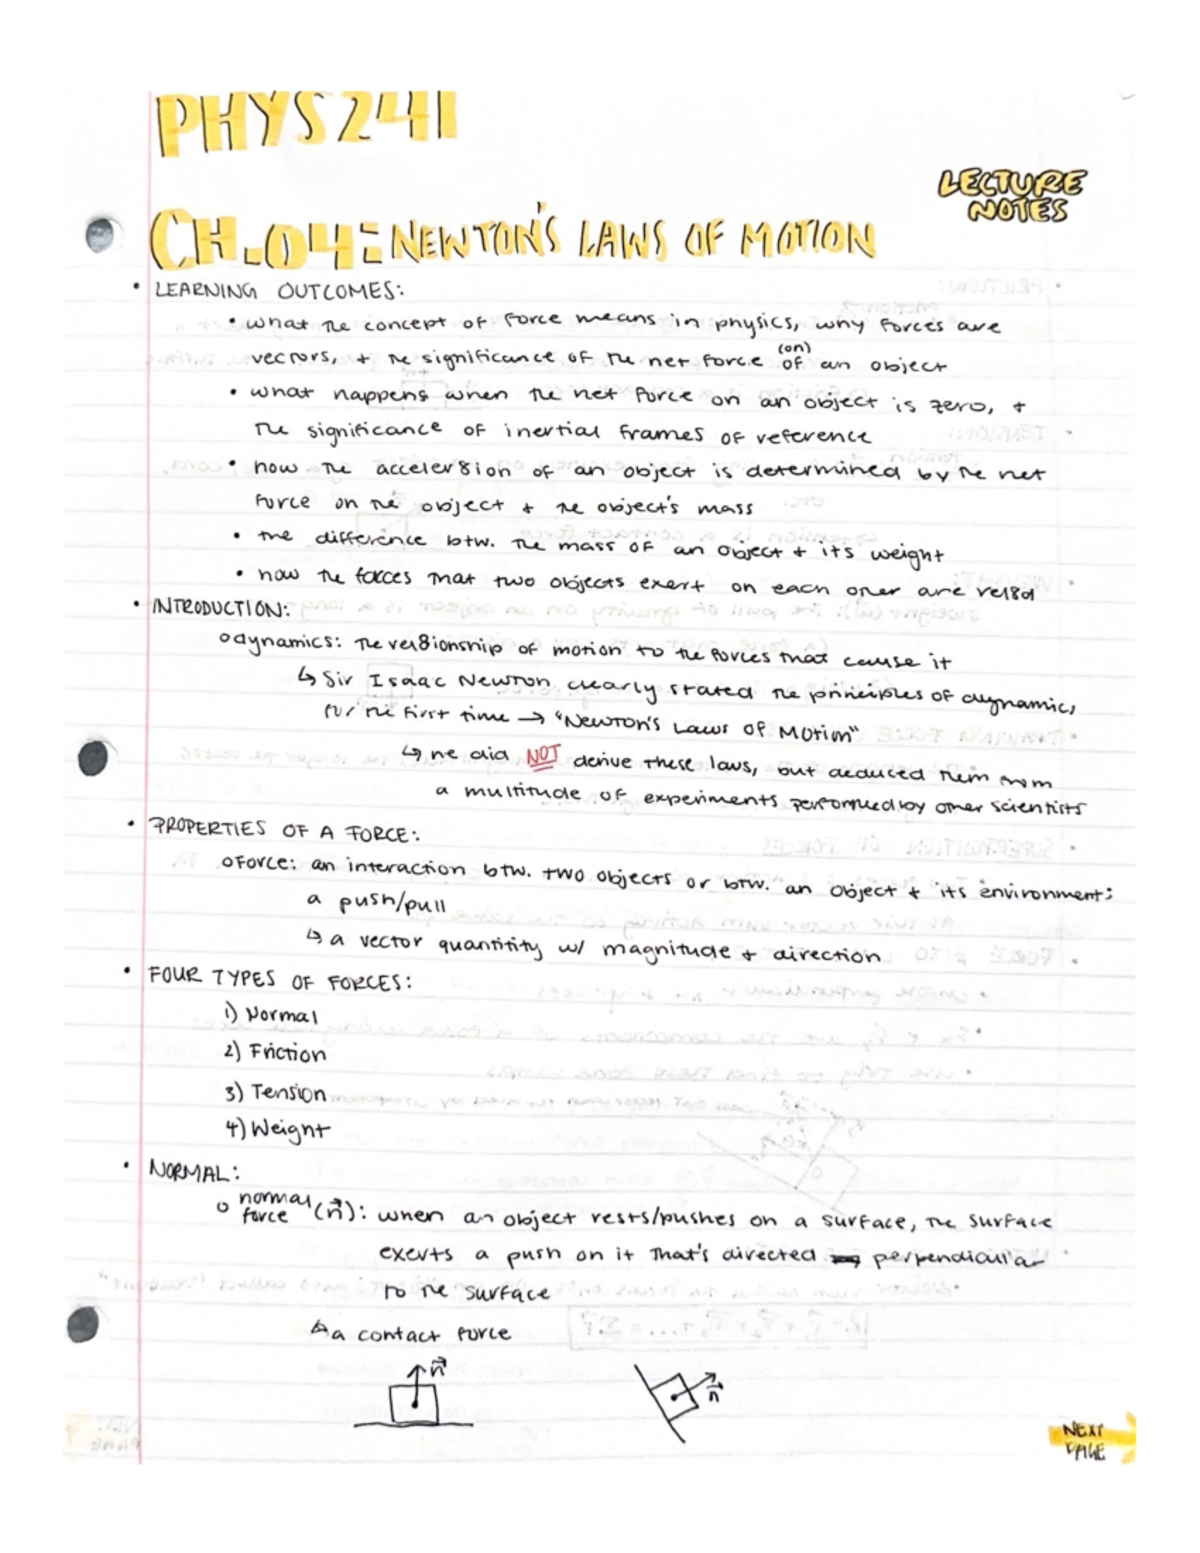 PHYS 241
LECTURE
NOTES
CH.04: NEWTON'S LAWS OF MOTION
• LEARNING OUTCOMES:
• what the concept of force means in physics, why forces are
vectors, + the significance of the net force of (on) an object
• what happens when the net force on an object is zero, +
the significance of inertial frames of reference
• how the acceler8ion of an object is determined by the net
force on the object + the object's mass
• the difference btw. the mass of an object + its weight
• how the forces that two objects exert on each other are rel8d
• INTRODUCTION:
o dynamics: the rel8ionship of motion to the forces that cause it
↳ Sir Isaac Newton clearly stated the principles of dynamics
for the first time → "Newton's Laws of Motion"
↳ he did NOT derive these laws, but deduced them from
a multitude of experiments performed by other scientists
• PROPERTIES OF A FORCE:
o Force: an interaction btw. two objects or btw. an object + its environment;
a push/pull
↳ a vector quantitity w/ magnitude + direction
• FOUR TYPES OF FORCES:
1) Normal
2) Friction
3) Tension
4) Weight
• NORMAL:
o normal force (n⃗): when an object rests/pushes on a surface, the surface
exerts a push on it that's directed perpendicular
to the surface
↳ a contact force
n⃗
n⃗
NEXT
PAGE